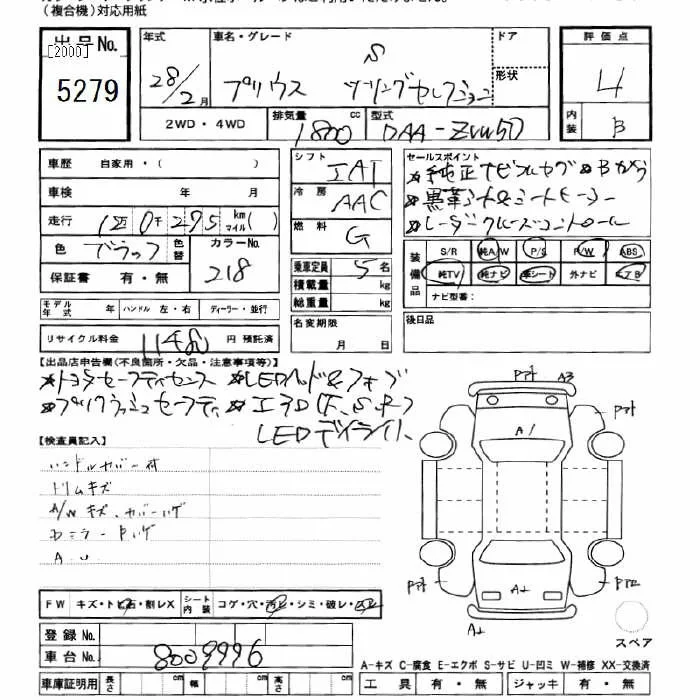 (複合機)対応用紙
出品No.
[2000]
5279
年式 車名・グレード ドア
28/2月 プリウス S ツーリングセレクション 形状
2WD・4WD 排気量 1800 cc 型式 DAA-ZVW50
評価点
4
内装 B
車歴 自家用・( )
車検 年 月
走行 12万0千295 km マイル( )
色 ブラック 色替 カラーNo. 218
保証書 有・無
モデル年式 年 ハンドル 左・右 ディーラー・並行
リサイクル料金 11480 円 預託済
シフト IAT
冷房 AAC
燃料 G
乗車定員 5名
積載量 kg
総重量 kg
名変期限
月 日
セールスポイント
★純正ナビフルセグ ★Bカメラ
★黒革シート&シートヒーター
★レーダークルーズコントロール
装備品 S/R 純A/W P/S P/W ABS
純TV 純ナビ 革シート 外ナビ エアB
ナビ型番:
後日品
【出品店申告欄(不良箇所・欠品・注意事項等)】
★トヨタセーフティセンス ★LEDヘッド&フォグ
★プリクラッシュセーフティ ★エアロ(F、S、R)
LEDデイライト
【検査員記入】
ハンドルカバー付
トリムキズ
A/Wキズ、カバーハゲ
A.U
FW キズ・トビ石・割レX シート内装 コゲ・穴・汚レ・シミ・破レ・
登録No.
車台No. 8009996
車庫証明用 長さ cm 幅 cm 高さ cm
Pアト A3
Pアト Pアト
A1
Pアト Pアト
A2
A2
スペア
A-キズ C-腐食 E-エクボ S-サビ U-凹ミ W-補修 XX-交換済
工具 有・無 ジャッキ 有・無